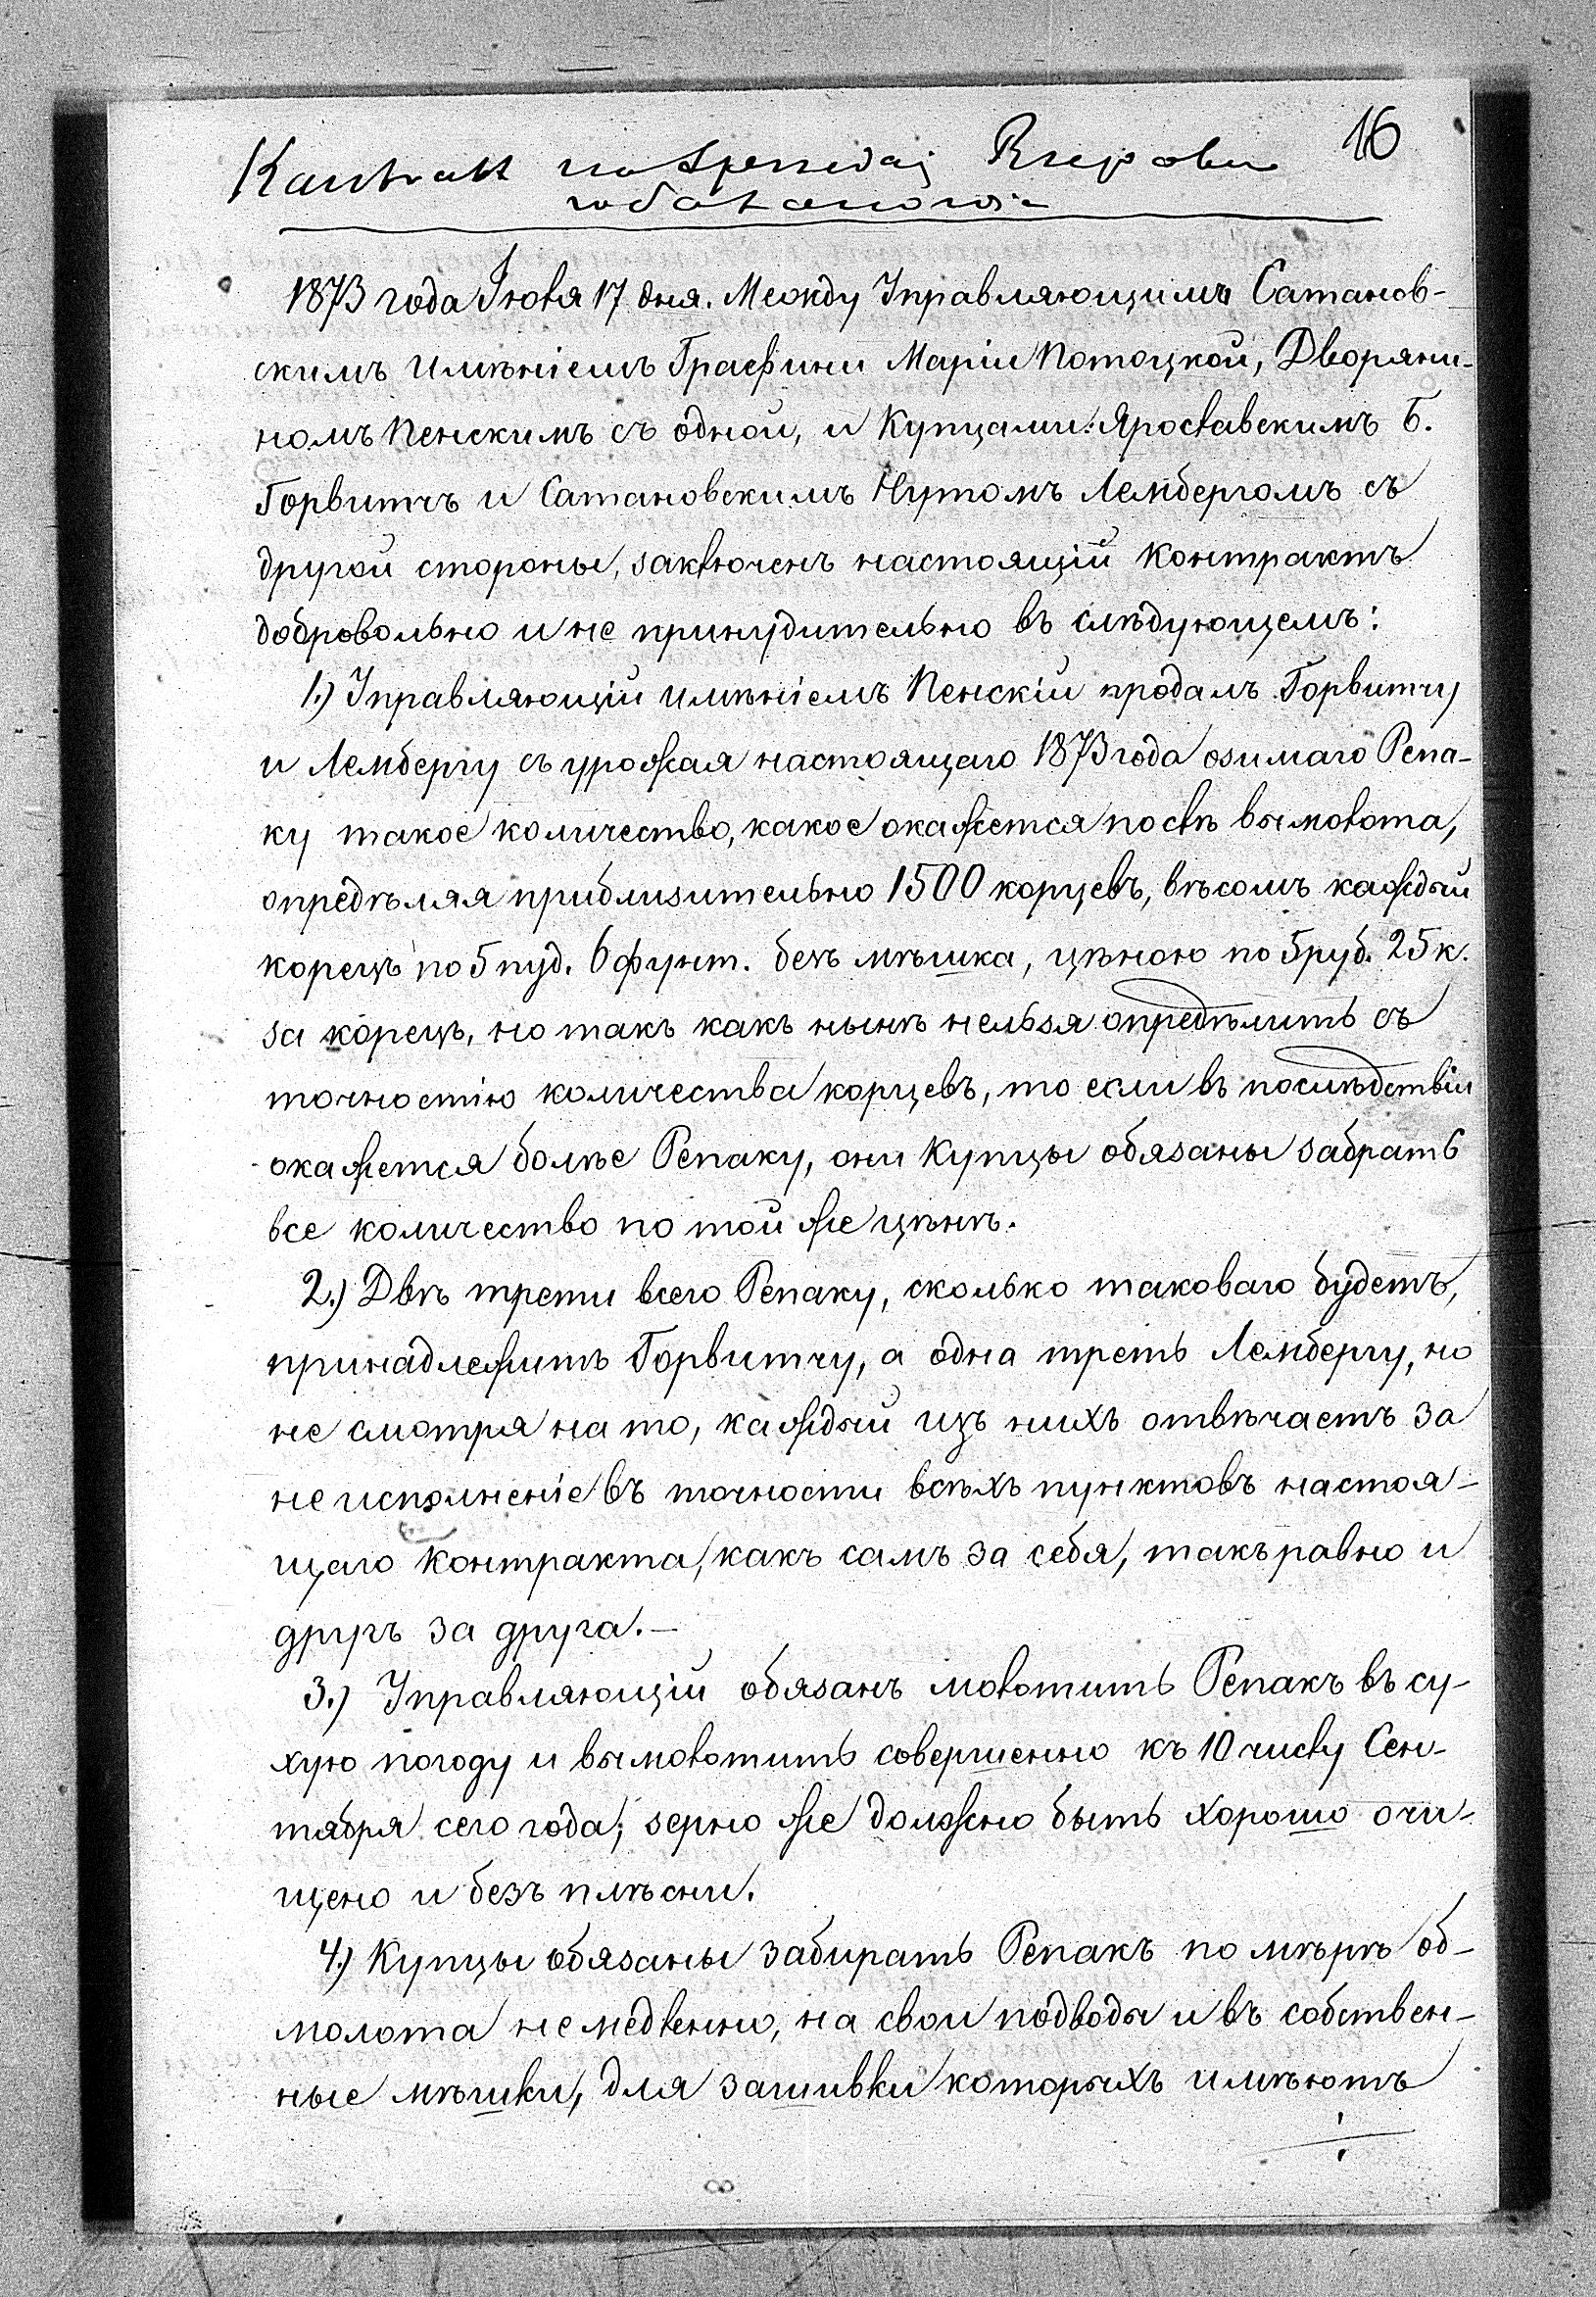 16
Kontrakt na sprzedaż Rzepaku
w Satanowie
1873 года Іюля 17 дня. Между Управляющимъ Сатанов-
скимъ имѣніемъ Графини Маріи Потоцкой, Дворяни-
номъ Пенскимъ съ одной, и Купцами: Ярославскимъ Б.
Горвитчъ и Сатановскимъ Нутомъ Лембергомъ съ
другой стороны, заключенъ настоящій Контрактъ
добровольно и не принудительно въ слѣдующемъ:
1.) Управляющій имѣніемъ Пенскій продалъ Горвитчу
и Лембергу съ урожая настоящаго 1873 года озимаго Репа-
ку такое количество, какое окажется послѣ вымолота,
опредѣляя приблизительно 1500 корцевъ, вѣсомъ каждый
корецъ по 5 пуд. 6 фунт. безъ мѣшка, цѣною по 5 руб. 25 к.
за корецъ, но такъ какъ нынѣ нельзя опредѣлить съ
точностію количества корцевъ, то если въ послѣдствіи
окажется болѣе Репаку, они Купцы обязаны забрать
все количество по той же цѣнѣ.
2.) Двѣ трети всего Репаку, сколько таковаго будетъ,
принадлежитъ Горвитчу, а одна треть Лембергу, но
не смотря на то, каждый изъ нихъ отвѣчаетъ за
неисполненіе въ точности всѣхъ пунктовъ настоя-
щаго Контракта, какъ самъ за себя, такъ равно и
другъ за друга.—
3.) Управляющій обязанъ молотить Репакъ въ су-
хую погоду и вымолотить совершенно къ 10 числу Сен-
тября сего года; зерно же должно быть хорошо очи-
щено и безъ плѣсни.
4.) Купцы обязаны забирать Репакъ по мѣрѣ об-
молота немедленно, на свои подводы и въ собствен-
ные мѣшки, для зашивки которыхъ имѣютъ